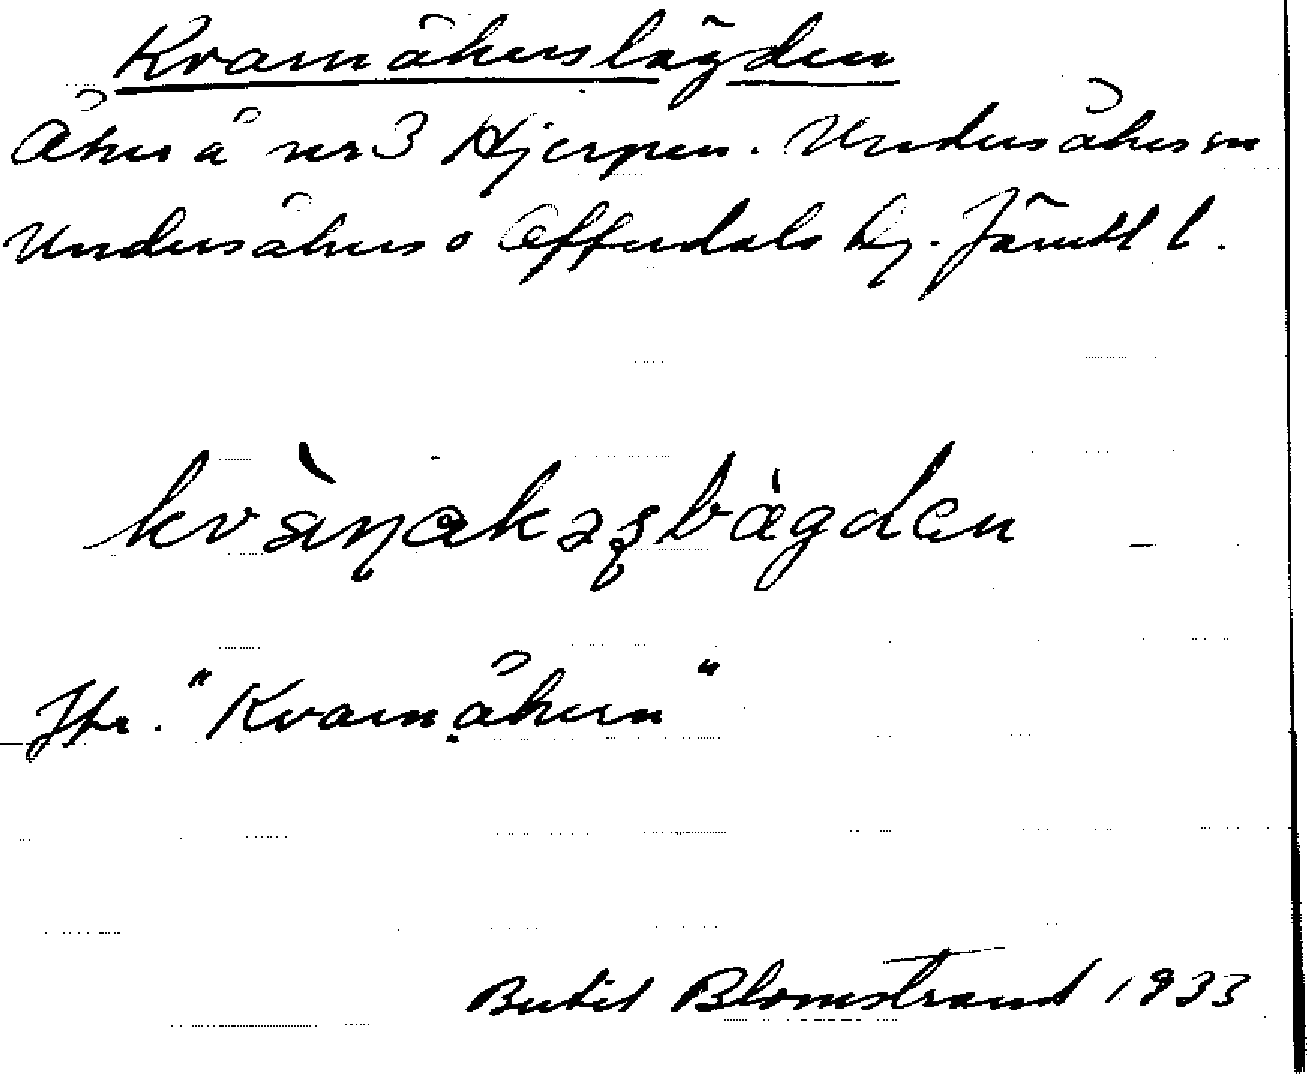 Kvarnåkerslägden
Åker å nr 3 Hjerpen. Undersåkers sn
Undersåkers o Offerdals tg. Jämtl l.
kvàṇakəṣlàgden
Jfr. "Kvarnåkern"
Bertil Blomstrand 1933